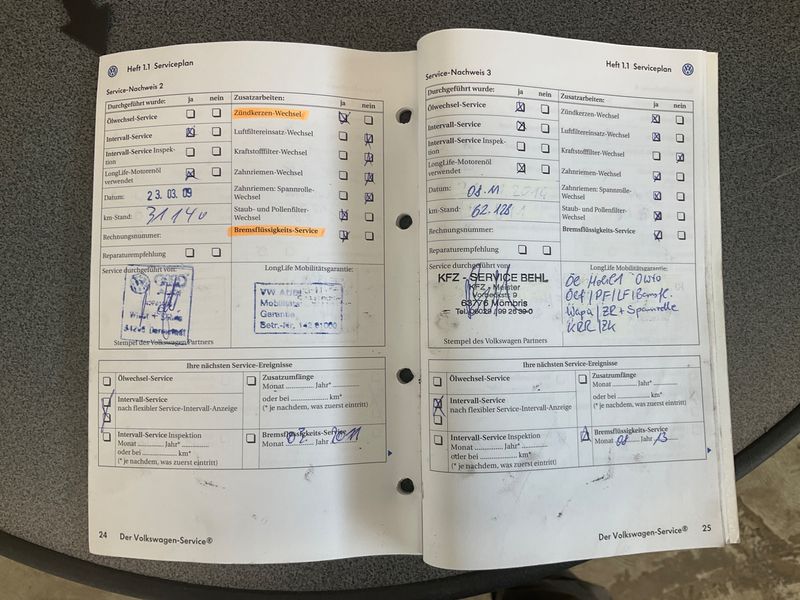 Heft 1.1 Serviceplan
Service-Nachweis 2
Durchgeführt wurde: ja nein
Ölwechsel-Service
Intervall-Service
Intervall-Service Inspek-
tion
LongLife-Motorenöl
verwendet
Datum: 23.03.09
km-Stand: 31140
Rechnungsnummer:
Reparaturempfehlung
Zusatzarbeiten: ja nein
Zündkerzen-Wechsel
Luftfiltereinsatz-Wechsel
Kraftstofffilter-Wechsel
Zahnriemen-Wechsel
Zahnriemen: Spannrolle-
Wechsel
Staub- und Pollenfilter-
Wechsel
Bremsflüssigkeits-Service
Service durchgeführt von:
Stempel des Volkswagen Partners
LongLife Mobilitätsgarantie:
Garantie
Ihre nächsten Service-Ereignisse
Ölwechsel-Service
Intervall-Service
nach flexibler Service-Intervall-Anzeige
Intervall-Service Inspektion
Monat Jahr*
oder bei km*
(* je nachdem, was zuerst eintritt)
Zusatzumfänge
Monat Jahr*
oder bei km*
(* je nachdem, was zuerst eintritt)
Bremsflüssigkeits-Service
Monat 03 Jahr 2011
24 Der Volkswagen-Service®
Heft 1.1 Serviceplan
Service-Nachweis 3
Durchgeführt wurde: ja nein
Ölwechsel-Service
Intervall-Service
Intervall-Service Inspek-
tion
LongLife-Motorenöl
verwendet
Datum: 08.11
km-Stand: 62.128
Rechnungsnummer:
Reparaturempfehlung
Zusatzarbeiten: ja nein
Zündkerzen-Wechsel
Luftfiltereinsatz-Wechsel
Kraftstofffilter-Wechsel
Zahnriemen-Wechsel
Zahnriemen: Spannrolle-
Wechsel
Staub- und Pollenfilter-
Wechsel
Bremsflüssigkeits-Service
Service durchgeführt von:
KFZ - SERVICE BEHL
KFZ - Meister
63776 Mömbris
Stempel des Volkswagen Partners
LongLife Mobilitätsgarantie:
Öl Mobil 1 0W30
Wapu/ZR + Spannrolle
KRR/ZK
Ihre nächsten Service-Ereignisse
Ölwechsel-Service
Intervall-Service
nach flexibler Service-Intervall-Anzeige
Intervall-Service Inspektion
Monat Jahr*
oder bei km*
(* je nachdem, was zuerst eintritt)
Zusatzumfänge
Monat Jahr*
oder bei km*
(* je nachdem, was zuerst eintritt)
Bremsflüssigkeits-Service
Monat 08 Jahr 13
Der Volkswagen-Service® 25